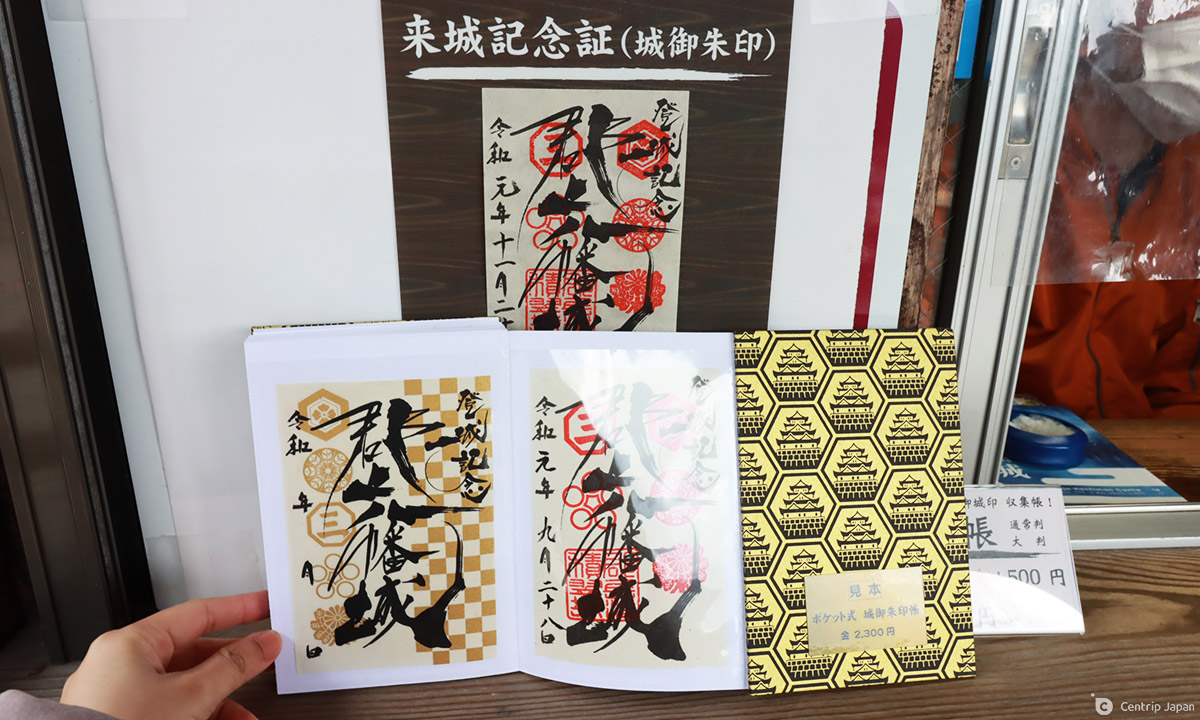 来城記念証(城御朱印)
登城記念
郡上八幡城
令和元年十一月二十
登城記念
郡上八幡城
令和 年 月 日
登城記念
郡上八幡城
令和元年 九月二十八日
見本
ポケット式 城御朱印帳
金 2,300円
御城印 収集帳!
帳 通常判
大 判
500円
Centrip Japan